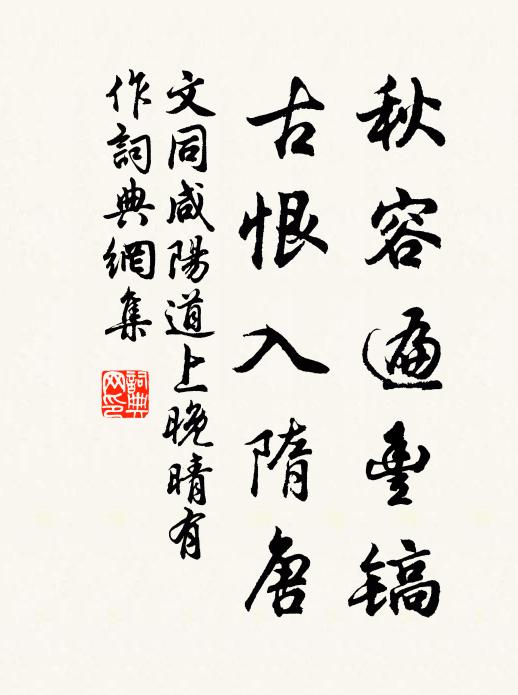 秋容遍豐鎬
古恨入隋唐
文同咸陽道上晚晴有
作詞典網集
詞典
网印